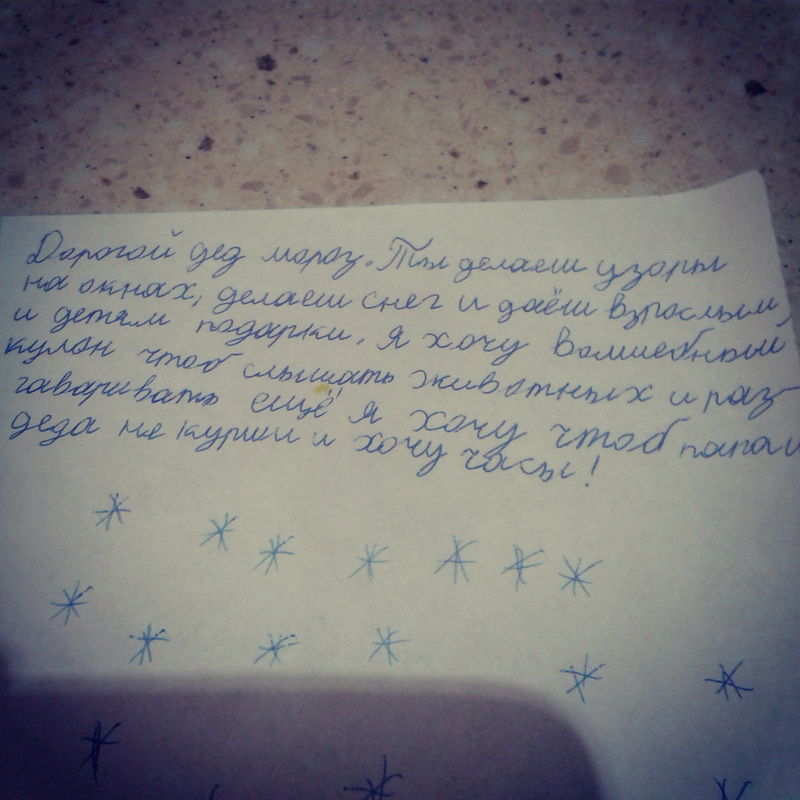 Дорогой дед мороз. Ты делаеш узоры
на окнах, делаеш снег и даёш взрослым,
и детям подарки. Я хочу волшебный
кулон чтоб слышать животных и раз-
гаваривать ещё я хочу чтоб папа и
деда не курили и хочу часы!